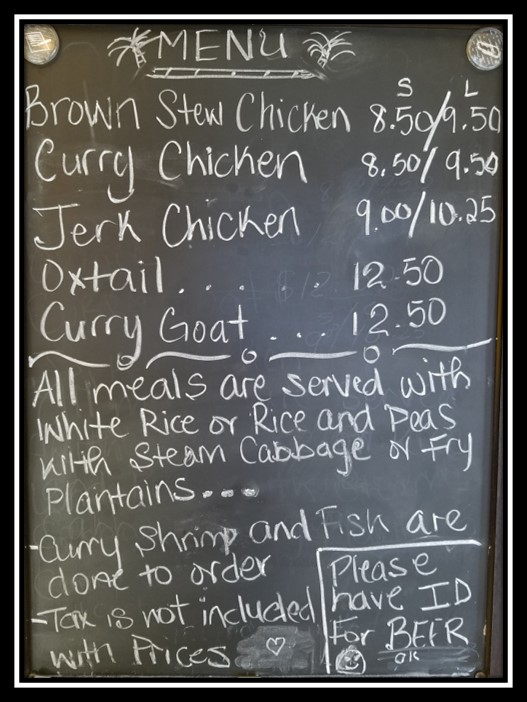 MENU
S L
Brown Stew Chicken 8.50/9.50
Curry Chicken 8.50/9.50
Jerk Chicken 9.00/10.25
Oxtail . . . . . 12.50
Curry Goat . . . 12.50
All meals are served with
White Rice or Rice and Peas
with Steam Cabbage or Fry
Plantains...
-Curry Shrimp and Fish are
done to order
-Tax is not included
with Prices ♡
Please
have ID
For BEER
ok